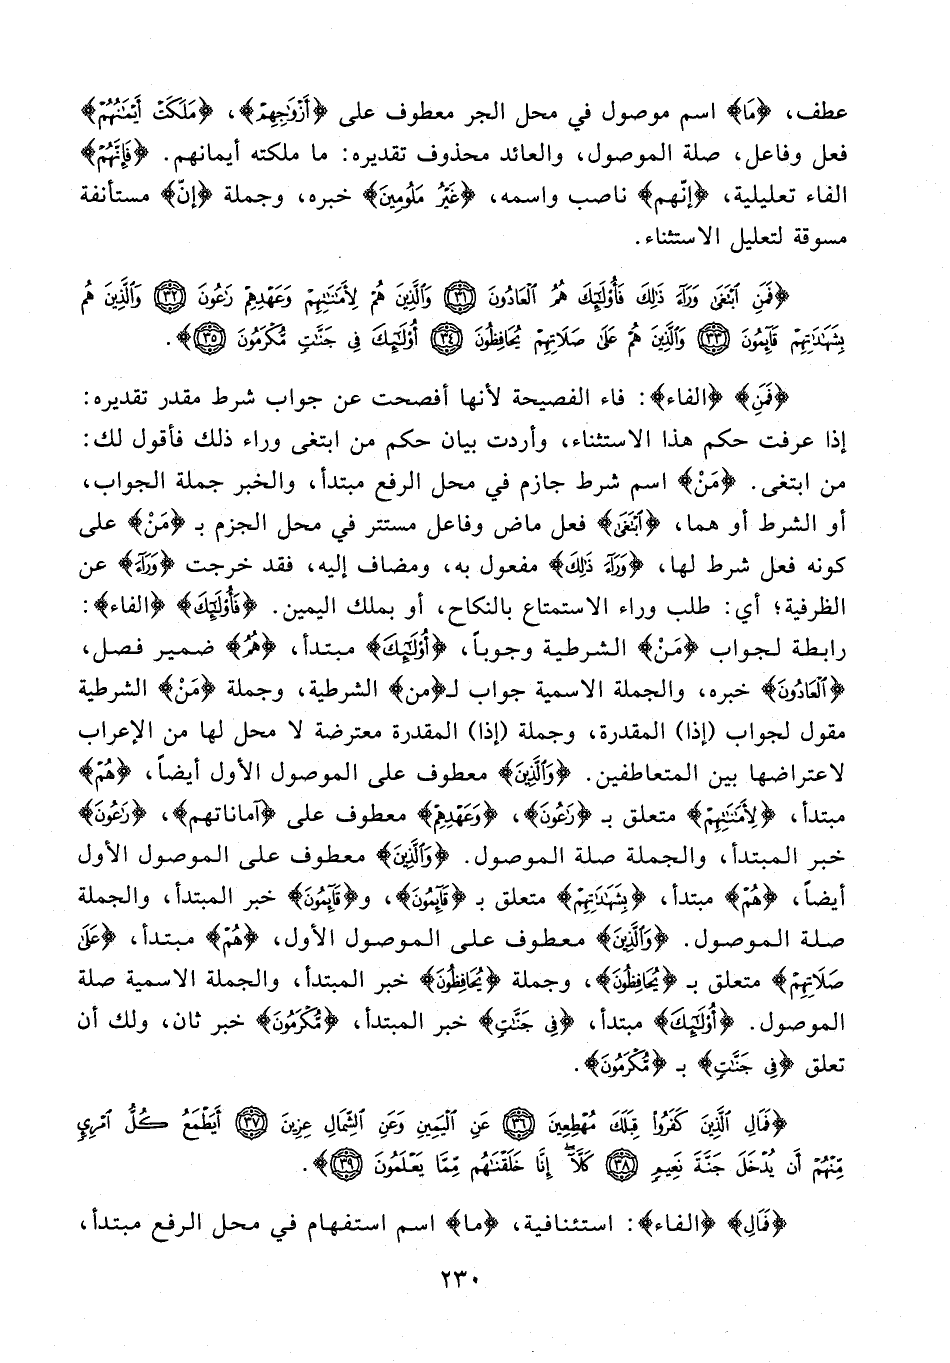 عطف، ﴿مَا﴾ اسم موصول في محل الجر معطوف على ﴿أَزْوَٰجِهِمْ﴾، ﴿مَلَكَتْ أَيْمَٰنُهُمْ﴾
فعل وفاعل، صلة الموصول، والعائد محذوف تقديره: ما ملكته أيمانهم. ﴿فَإِنَّهُمْ﴾
الفاء تعليلية، ﴿إنّهم﴾ ناصب واسمه، ﴿غَيْرُ مَلُومِينَ﴾ خبره، وجملة ﴿إنّ﴾ مستأنفة
مسوقة لتعليل الاستثناء.
﴿فَمَنِ ٱبْتَغَىٰ وَرَآءَ ذَٰلِكَ فَأُو۟لَٰٓئِكَ هُمُ ٱلْعَادُونَ ﴿٣١﴾ وَٱلَّذِينَ هُمْ لِأَمَٰنَٰتِهِمْ وَعَهْدِهِمْ رَٰعُونَ ﴿٣٢﴾ وَٱلَّذِينَ هُم
بِشَهَٰدَٰتِهِمْ قَآئِمُونَ ﴿٣٣﴾ وَٱلَّذِينَ هُمْ عَلَىٰ صَلَاتِهِمْ يُحَافِظُونَ ﴿٣٤﴾ أُو۟لَٰٓئِكَ فِى جَنَّٰتٍ مُّكْرَمُونَ ﴿٣٥﴾﴾.
﴿فَمَنِ﴾ ﴿الفاء﴾: فاء الفصيحة لأنها أفصحت عن جواب شرط مقدر تقديره:
إذا عرفت حكم هذا الاستثناء، وأردت بيان حكم من ابتغى وراء ذلك فأقول لك:
من ابتغى. ﴿مَنْ﴾ اسم شرط جازم في محل الرفع مبتدأ، والخبر جملة الجواب،
أو الشرط أو هما، ﴿ٱبْتَغَىٰ﴾ فعل ماض وفاعل مستتر في محل الجزم بـ ﴿مَنْ﴾ على
كونه فعل شرط لها، ﴿وَرَآءَ ذَٰلِكَ﴾ مفعول به، ومضاف إليه، فقد خرجت ﴿وَرَآءَ﴾ عن
الظرفية؛ أي: طلب وراء الاستمتاع بالنكاح، أو بملك اليمين. ﴿فَأُو۟لَٰٓئِكَ﴾ ﴿الفاء﴾:
رابطة لجواب ﴿مَنْ﴾ الشرطية وجوباً، ﴿أُو۟لَٰٓئِكَ﴾ مبتدأ، ﴿هُمُ﴾ ضمير فصل،
﴿ٱلْعَادُونَ﴾ خبره، والجملة الاسمية جواب لـ﴿من﴾ الشرطية، وجملة ﴿مَنْ﴾ الشرطية
مقول لجواب (إذا) المقدرة، وجملة (إذا) المقدرة معترضة لا محل لها من الإعراب
لاعتراضها بين المتعاطفين. ﴿وَٱلَّذِينَ﴾ معطوف على الموصول الأول أيضاً، ﴿هُمْ﴾
مبتدأ، ﴿لِأَمَٰنَٰتِهِمْ﴾ متعلق بـ ﴿رَٰعُونَ﴾، ﴿وَعَهْدِهِمْ﴾ معطوف على ﴿آماناتهم﴾، ﴿رَٰعُونَ﴾
خبر المبتدأ، والجملة صلة الموصول. ﴿وَٱلَّذِينَ﴾ معطوف على الموصول الأول
أيضاً، ﴿هُمْ﴾ مبتدأ، ﴿بِشَهَٰدَٰتِهِمْ﴾ متعلق بـ ﴿قَآئِمُونَ﴾، و﴿قَآئِمُونَ﴾ خبر المبتدأ، والجملة
صلة الموصول. ﴿وَٱلَّذِينَ﴾ معطوف على الموصول الأول، ﴿هُمْ﴾ مبتدأ، ﴿عَلَىٰ
صَلَاتِهِمْ﴾ متعلق بـ ﴿يُحَافِظُونَ﴾، وجملة ﴿يُحَافِظُونَ﴾ خبر المبتدأ، والجملة الاسمية صلة
الموصول. ﴿أُو۟لَٰٓئِكَ﴾ مبتدأ، ﴿فِى جَنَّٰتٍ﴾ خبر المبتدأ، ﴿مُّكْرَمُونَ﴾ خبر ثان، ولك أن
تعلق ﴿فِى جَنَّٰتٍ﴾ بـ ﴿مُّكْرَمُونَ﴾.
﴿فَمَالِ ٱلَّذِينَ كَفَرُوا۟ قِبَلَكَ مُهْطِعِينَ ﴿٣٦﴾ عَنِ ٱلْيَمِينِ وَعَنِ ٱلشِّمَالِ عِزِينَ ﴿٣٧﴾ أَيَطْمَعُ كُلُّ ٱمْرِئٍ
مِّنْهُمْ أَن يُدْخَلَ جَنَّةَ نَعِيمٍ ﴿٣٨﴾ كَلَّآ ۖ إِنَّا خَلَقْنَٰهُم مِّمَّا يَعْلَمُونَ ﴿٣٩﴾﴾.
﴿فَمَالِ﴾ ﴿الفاء﴾: استئنافية، ﴿ما﴾ اسم استفهام في محل الرفع مبتدأ،
٢٣٠